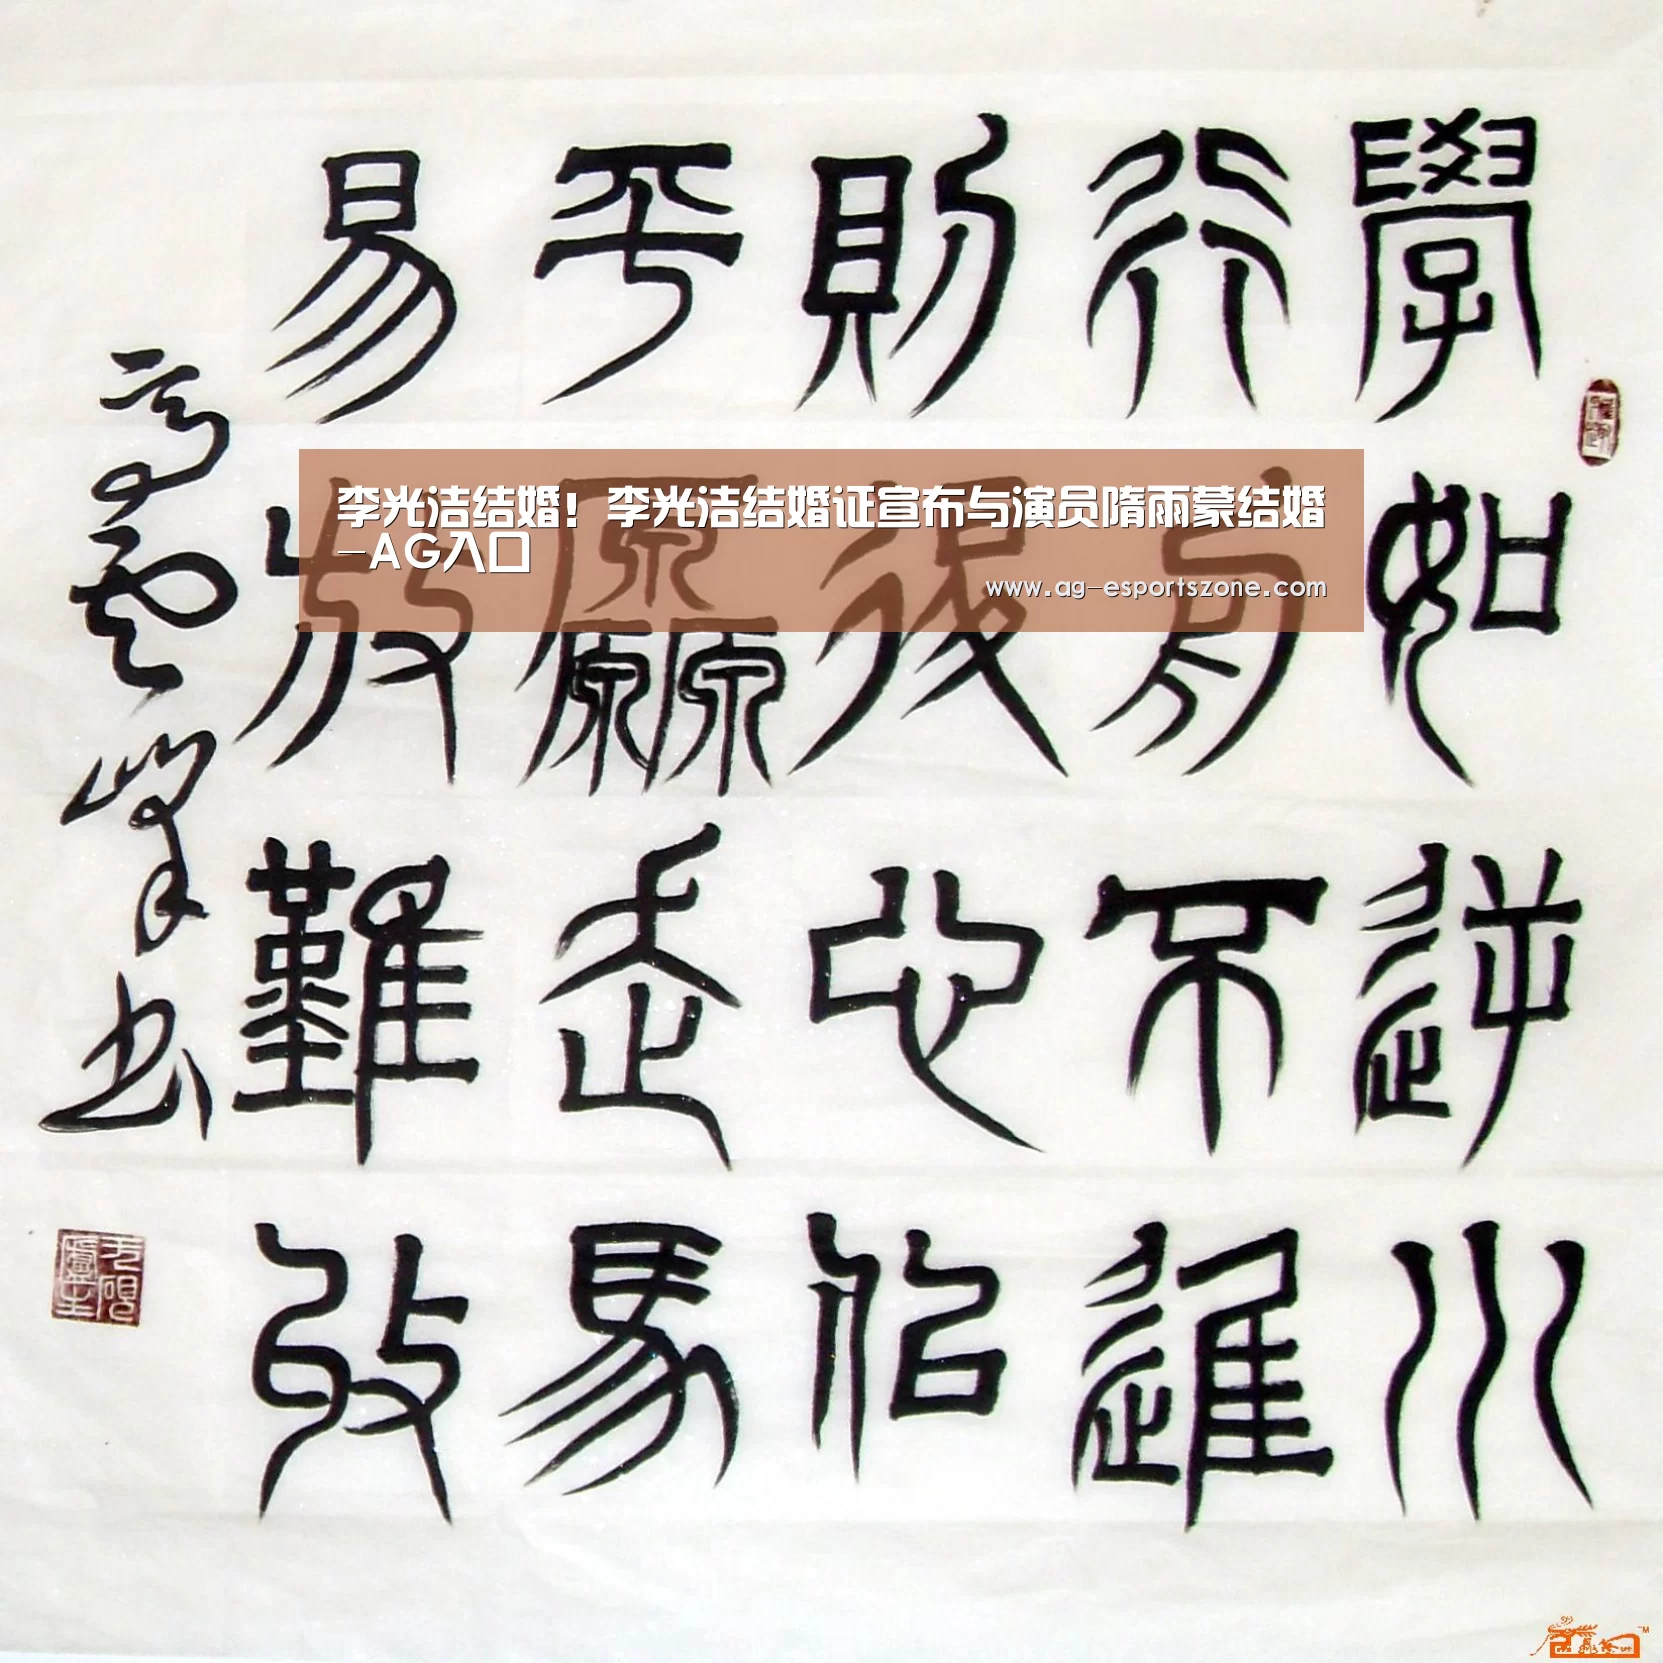 學如逆水
行舟不進
則退心佀
平厵走馬
易放難收
高雲峯書
李光洁结婚！李光洁结婚证宣布与演员隋雨蒙结婚
-AG入口
www.ag-esportszone.com